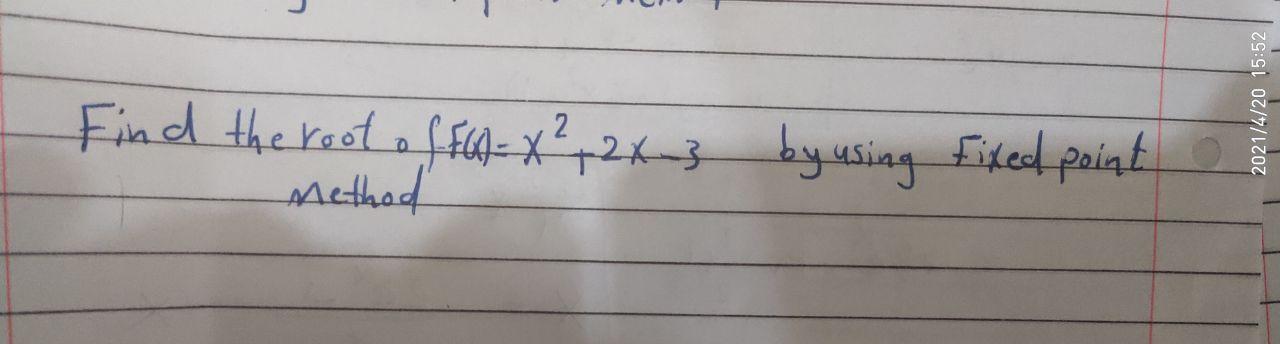 Find the root of F(x)=x²+2x-3 by using Fixed point
Method
2021/4/20 15:52